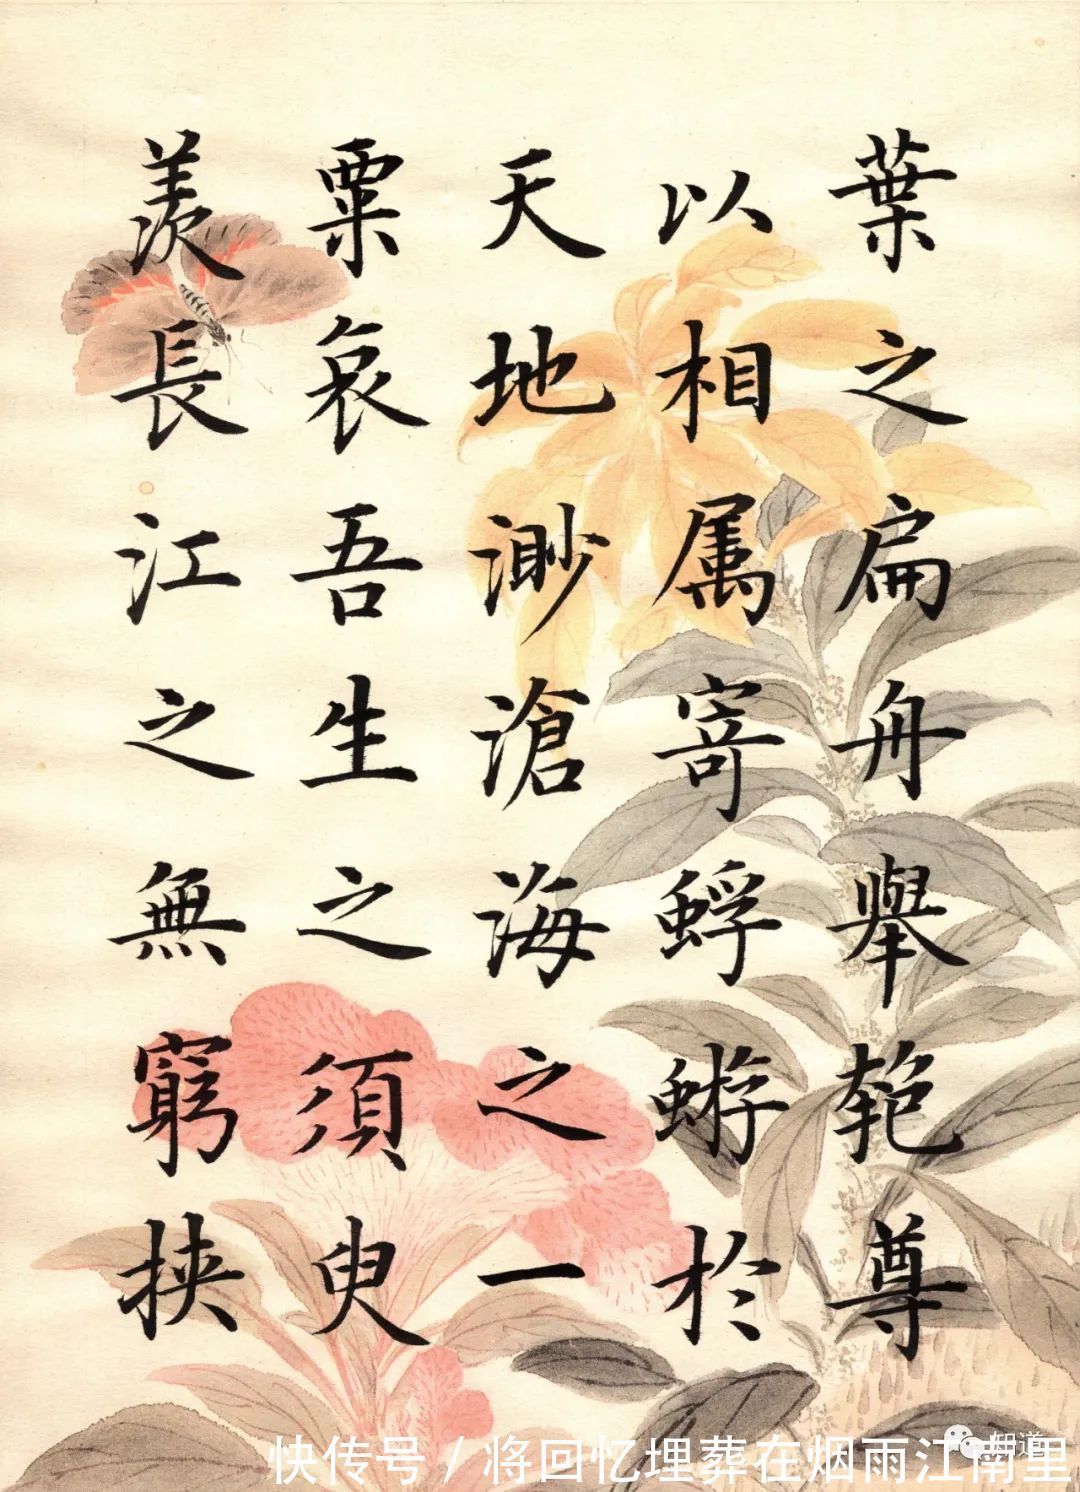 葉之扁舟舉匏尊
以相属寄蜉蝣於
天地渺滄海之一
粟哀吾生之須臾
羨長江之無窮挟
知道
快传号/将回忆埋葬在烟雨江南里